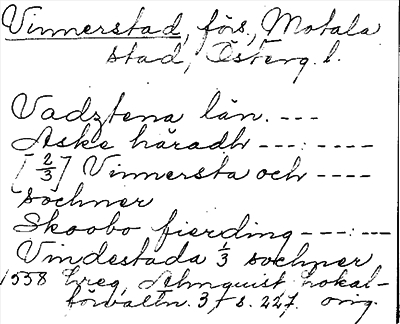 Vinnerstad, förs., Motala
stad, Österg. l.
Vadztena län. ---
Aske häradh ---:----
[2/3] Vinnersta och ----
sochner
Skoobo fierding ---:---
Vindestada 1/3 sochner
1558 Ereg, Almquist Lokal-
förvaltn. 3, s. 227. orig.